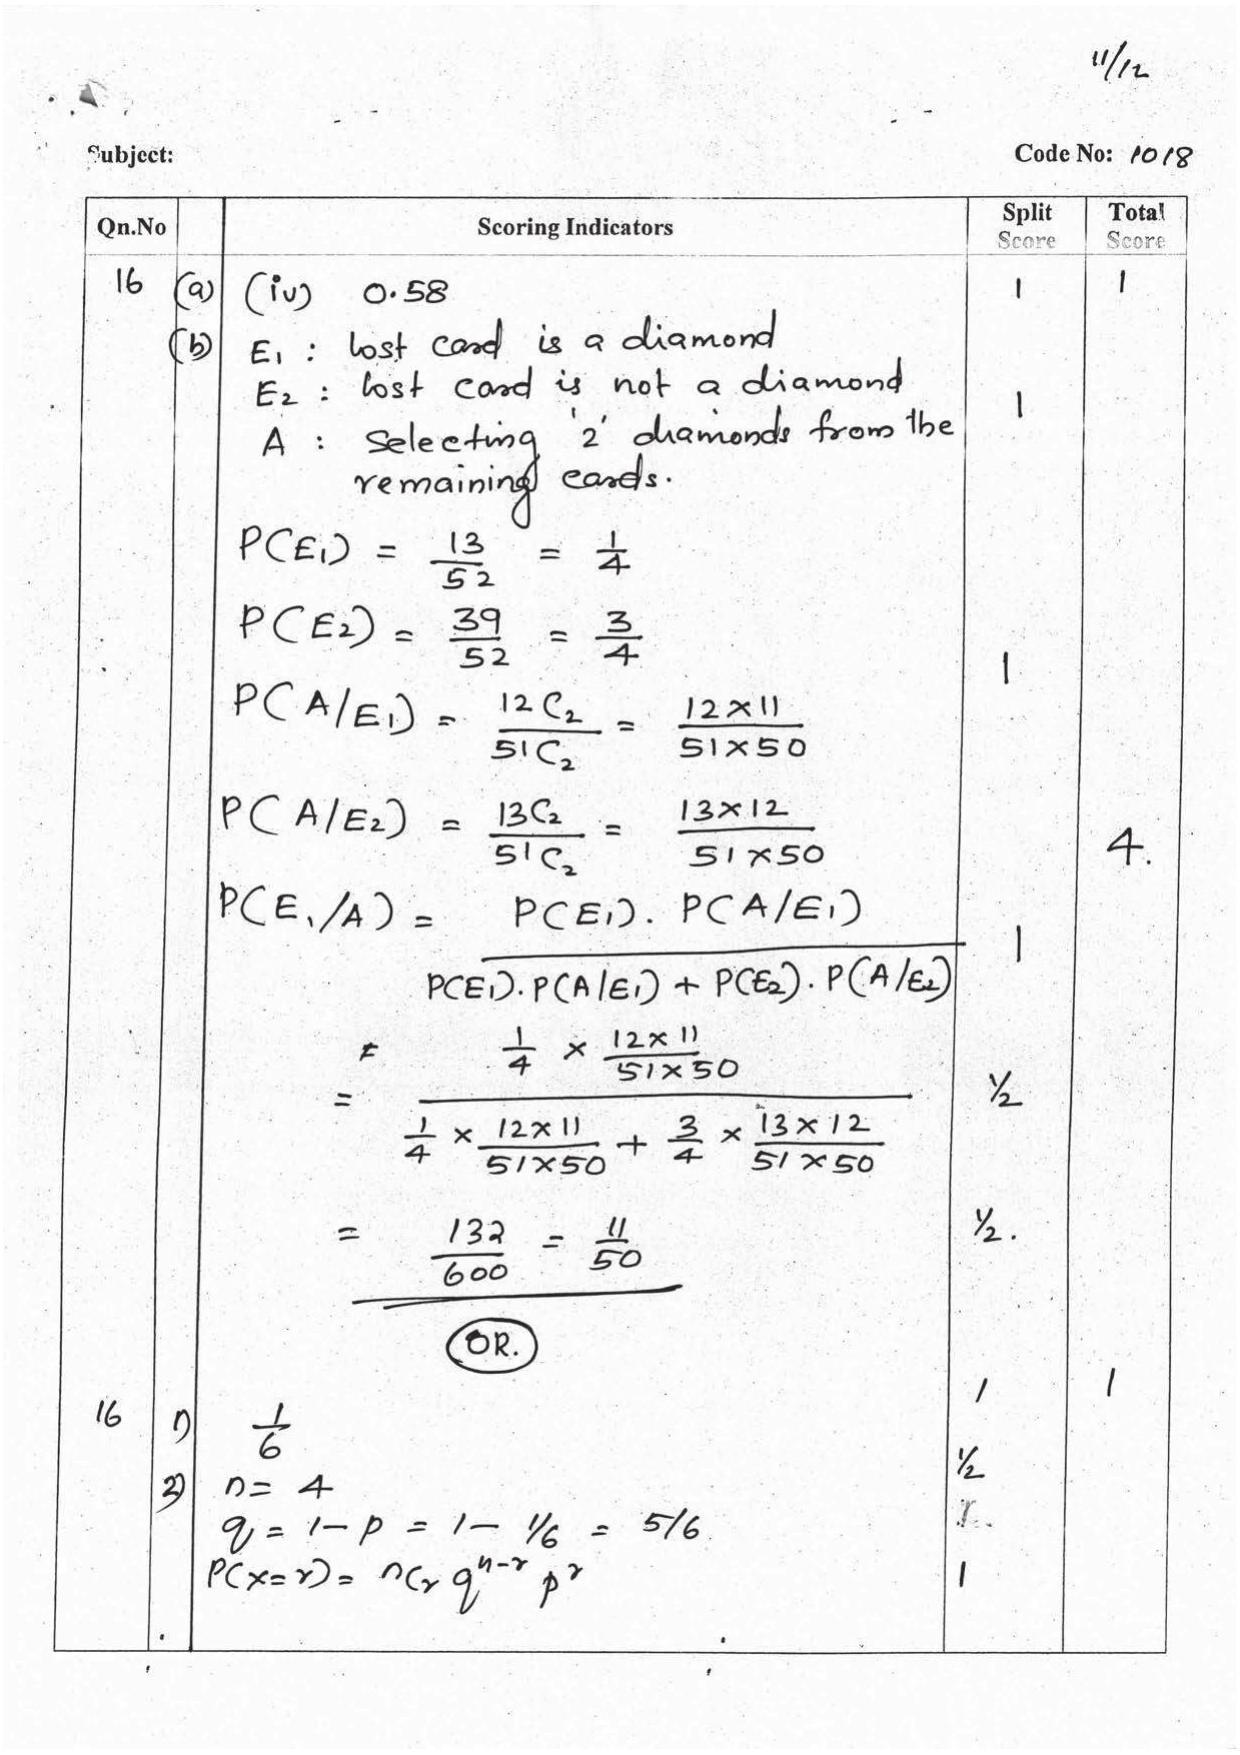 11/12
Subject:
Code No: 1018
Qn.No Scoring Indicators Split Score Total Score
16 (a) (iv) 0.58 1 1
(b) E₁ : lost card is a diamond
E₂ : lost card is not a diamond 1
A : Selecting '2' diamonds from the
remaining cards.
P(E₁) = 13/52 = 1/4
P(E₂) = 39/52 = 3/4 1
P(A/E₁) = 12C₂/51C₂ = 12×11/51×50
P(A/E₂) = 13C₂/51C₂ = 13×12/51×50 4.
P(E₁/A) = P(E₁). P(A/E₁) 1
P(E₁).P(A/E₁) + P(E₂).P(A/E₂)
= 1/4 × 12×11/51×50 ½
1/4 × 12×11/51×50 + 3/4 × 13×12/51×50
= 132/600 = 11/50 ½.
OR.
16 1) 1/6 1 1
2) n = 4 ½
q = 1-p = 1- 1/6 = 5/6
P(x=r) = nCr qⁿ⁻ʳ pʳ 1